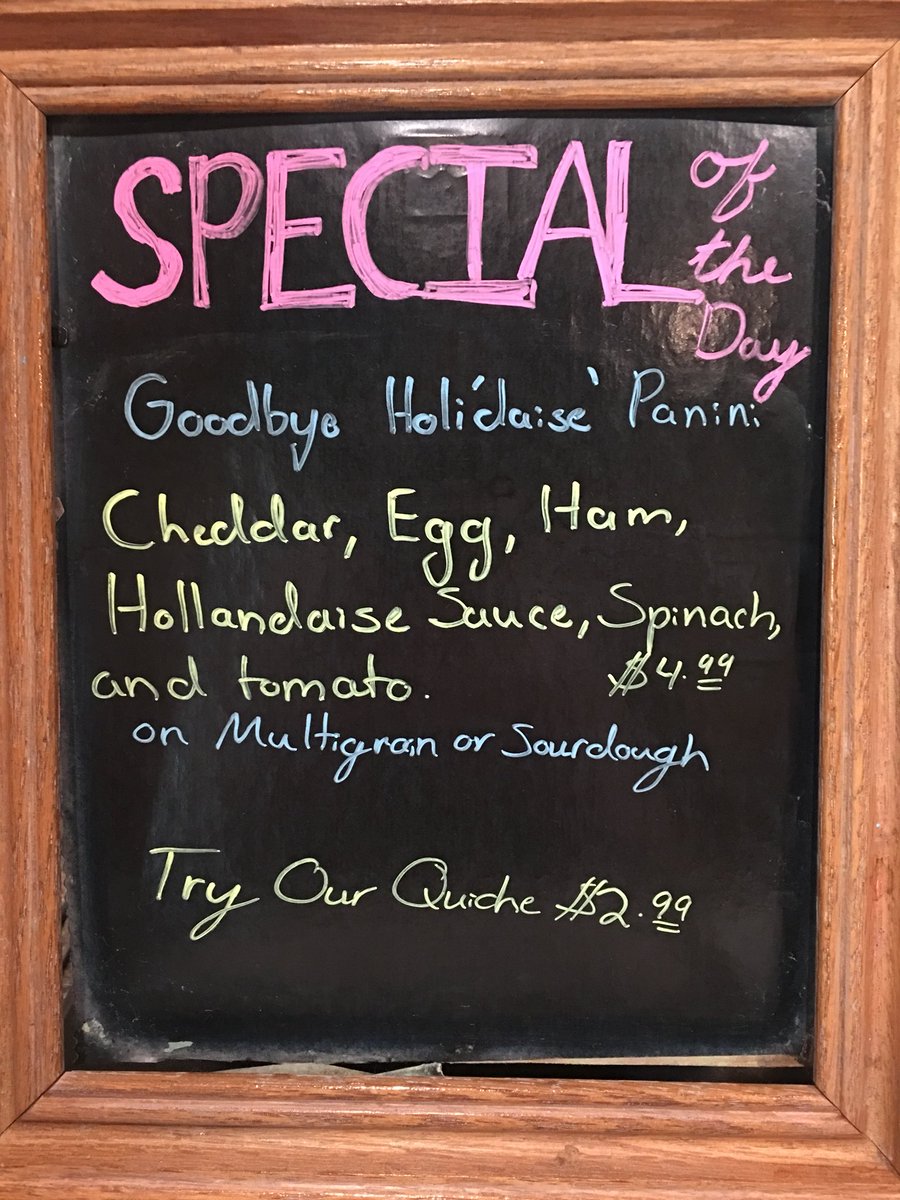 SPECIAL of the Day
Goodbye Holi'daise' Panini
Cheddar, Egg, Ham,
Hollandaise Sauce, Spinach,
and tomato. $4.99
on Multigrain or Sourdough
Try Our Quiche $2.99